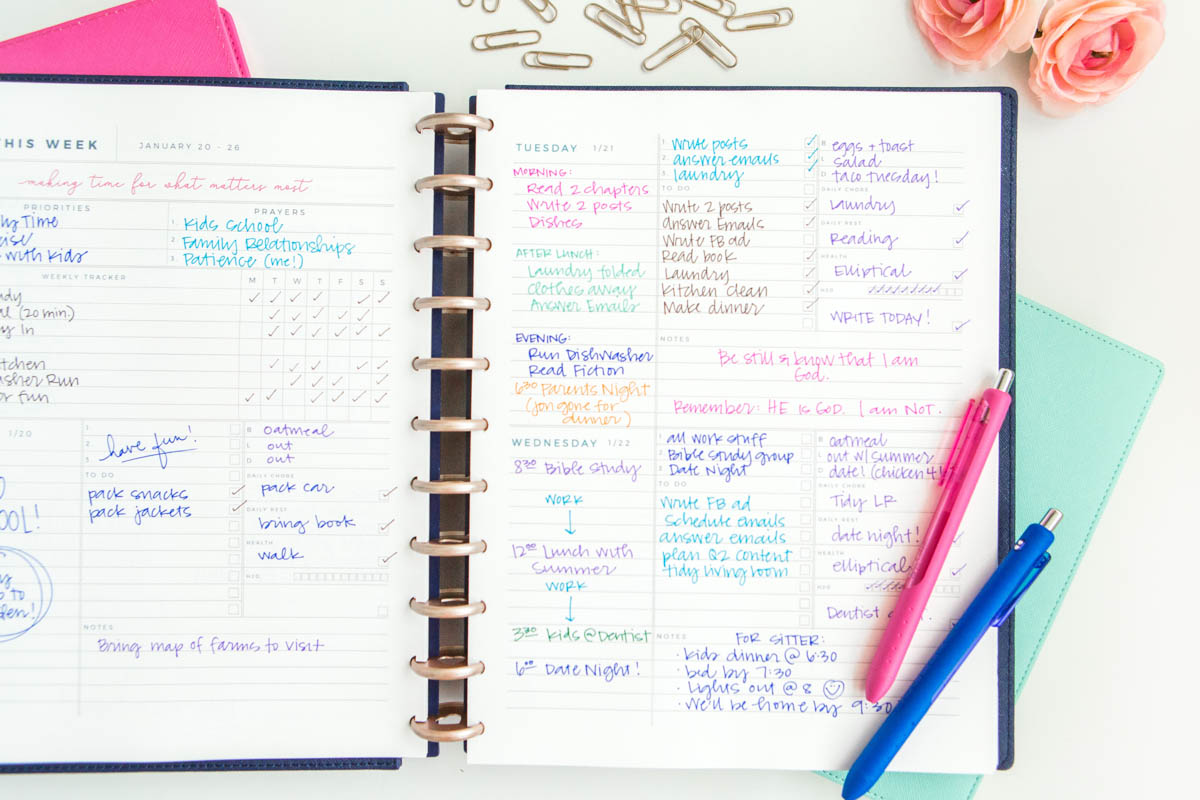 THIS WEEK
JANUARY 20 - 26
making time for what matters most
PRIORITIES
ly Time
with kids
PRAYERS
1. Kids School
2. Family Relationships
3. Patience (me!)
WEEKLY TRACKER
M T W T F S S
(20 min)
In
Run
or fun
1/20
1.
2. have fun!
3.
TO DO
pack snacks
pack jackets
B oatmeal
L out
D out
DAILY CHORE
pack car
DAILY REST
bring book
HEALTH
walk
H2O
OOL!
to
NOTES
Bring map of farms to visit
TUESDAY 1/21
MORNING:
Read 2 chapters
Write 2 posts
Dishes
AFTER LUNCH:
Laundry folded
clothes away
Answer Emails
EVENING:
Run Dishwasher
Read Fiction
6:30 Parents Night
(Jon gone for
dinner)
1. Write posts
2. answer emails
3. laundry
TO DO
Write 2 posts
answer Emails
Write FB ad
Read book
Laundry
Kitchen clean
Make dinner
B eggs + toast
L salad
D taco tuesday!
DAILY CHORE
Laundry
DAILY REST
Reading
HEALTH
Elliptical
H2O
WRITE TODAY!
NOTES
Be still & know that I am
God.
Remember: HE is GOD. I am NOT.
WEDNESDAY 1/22
8:30 Bible Study
WORK
12:00 Lunch with
Summer
WORK
3:30 Kids @ Dentist
6:00 Date Night!
1 all work stuff
2 Bible study group
3 Date Night
TO DO
Write FB ad
schedule emails
answer emails
plan Q2 content
tidy living room
B oatmeal
L out w/ summer
D date! (chicken 4
DAILY CHORE
Tidy LR
DAILY REST
date night!
HEALTH
elliptical
H2O
Dentist
NOTES
FOR SITTER:
· kids dinner @ 6:30
· bed by 7:30
· Lights out @ 8
· We'll be home by 9:30